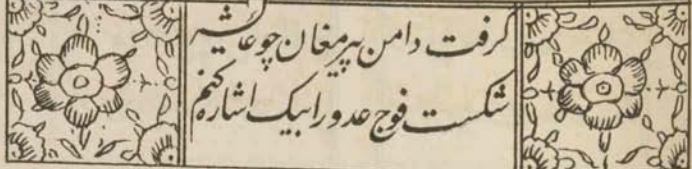 گرفت دامن پیر مغان چو عائشہ
شکست فوج عدو را بیک اشاره کنم